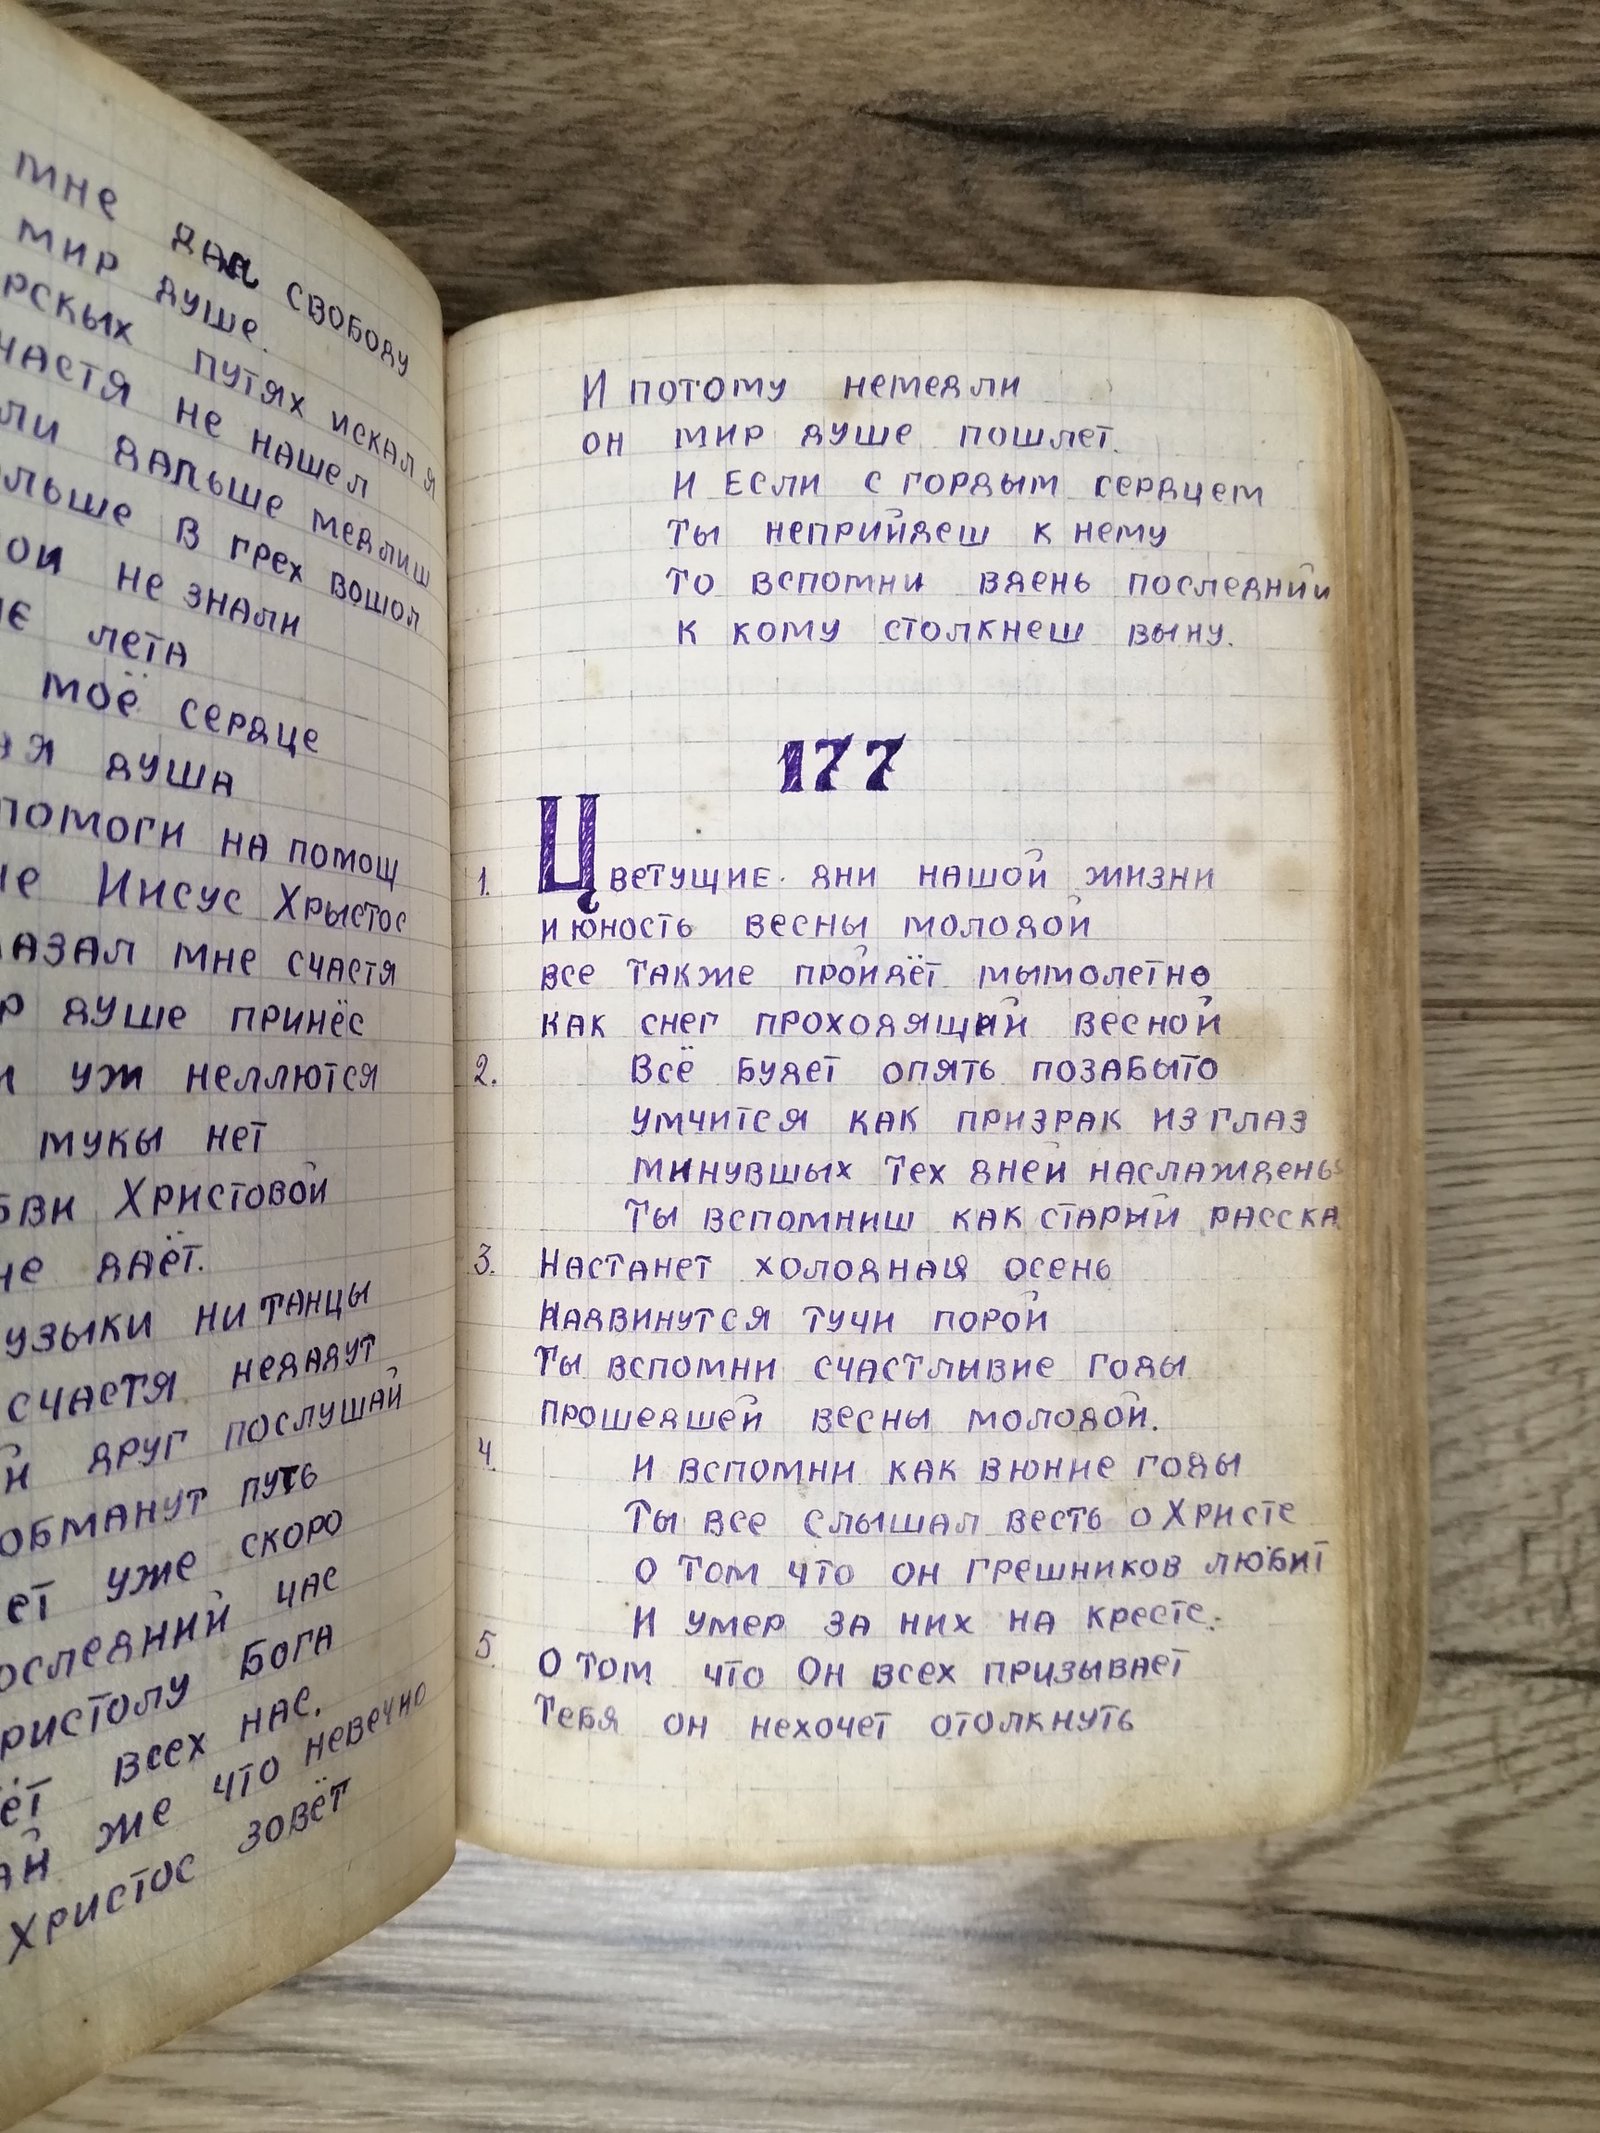 мне дал свободу
мир душе.
путях искал я
не нашел
дальше медлиш
в грех вошол
не знали
лета
моё сердце
душа
помоги на помощ
Иисус Хрыстос
мне счастя
душе принёс
уж неллются
мукы нет
Христовой
даёт.
ни танцы
счастя недадут
друг послушай
обманут путь
уже скоро
час
Бога
всех нас.
же что невечно
Христос зовёт
И потому немедли
он мир душе пошлет.
И Если с гордым сердцем
ты неприйдеш к нему
то вспомни вдень последний
к кому столкнеш выну.
177
1. Цветущие дни нашой жизни
и юность весны молодой
все также пройдёт мымолетно
как снег проходящий весной
2. Всё будет опять позабыто
умчится как призрак из глаз
минувшых тех дней наслаждень
Ты вспомниш как старый расска
3. Настанет холодная осень
Надвинутся тучи порой
Ты вспомни счастливие годы
прошедшей весны молодой.
4. И вспомни как в юние годы
Ты все слышал весть о Христе
о том что он грешников любит
И умер за них на кресте.
5. О том что Он всех призывает
Тебя он нехочет отолкнуть